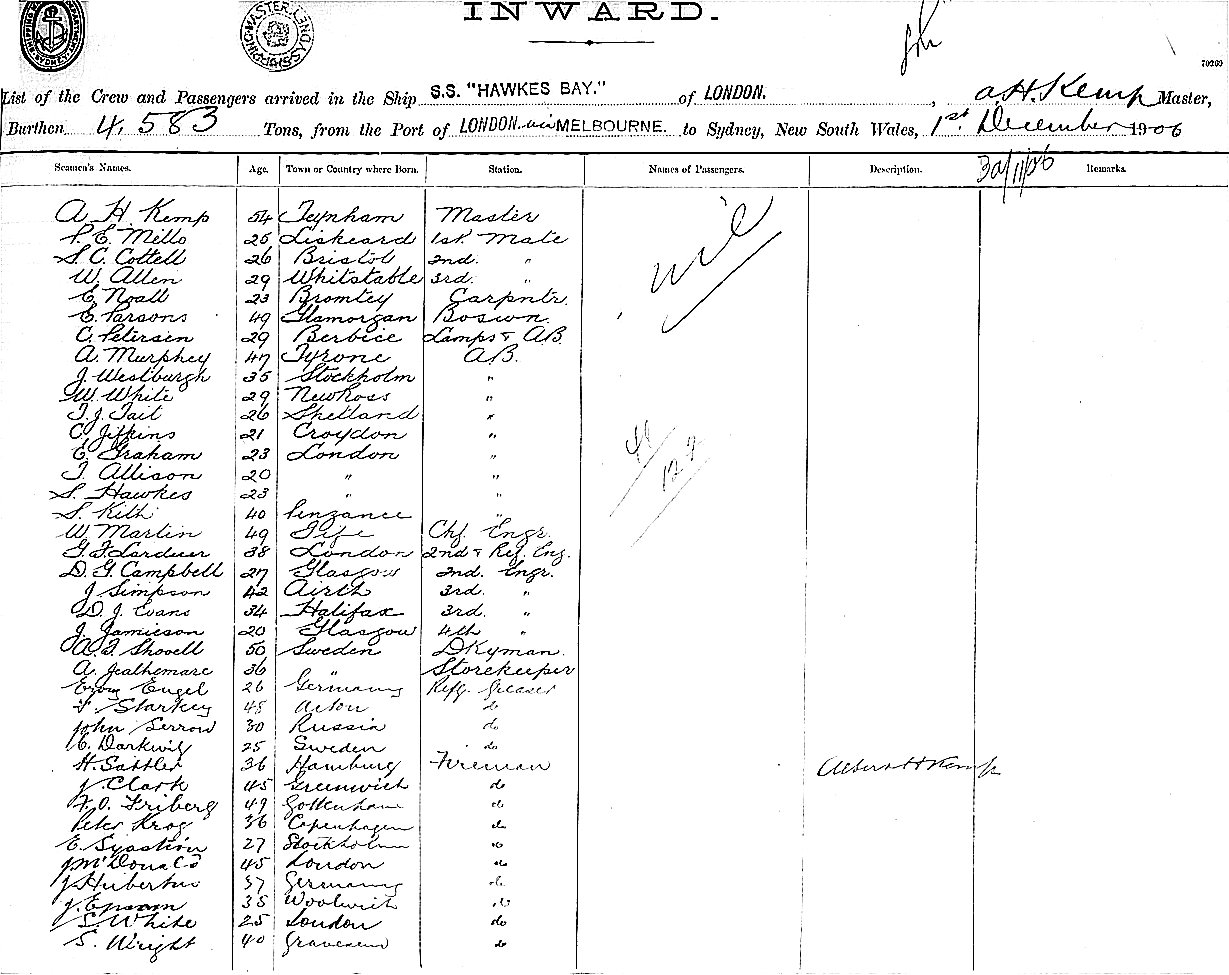 INWARD.
70269
List of the Crew and Passengers arrived in the Ship S.S. "HAWKES BAY." of LONDON. , A.H. Kemp Master,
Burthen 4,583 Tons, from the Port of LONDON via MELBOURNE. to Sydney, New South Wales, 1st. December 1906
30/11/06
Seamen's Names. Age. Town or Country where Born. Station. Names of Passengers. Description. Remarks.
nil
A. H. Kemp 54 Teynham Master
P. E. Mills 25 Liskeard 1st. Mate
S. C. Cottell 26 Bristol 2nd. "
W. Allen 29 Whitstable 3rd. "
E. Noall 23 Bromley Carpntr.
E. Parsons 49 Glamorgan Boswn.
C. Petersen 29 Berbice Lamps & AB.
A. Murphey 47 Tyrone A.B.
J. Westburgh 35 Stockholm "
W. White 29 New Ross "
T. J. Tait 26 Shetland "
C. Jifkins 21 Croydon "
E. Graham 23 London "
T. Allison 20 " "
S. Hawkes 23 " "
S. Kith 40 Penzance "
W. Martin 49 Fife Chf. Engr.
G. F. Lardner 38 London 2nd & Ref. Eng.
D. G. Campbell 27 Glasgow 2nd. Engr.
J. Simpson 42 Airth 3rd. "
D. J. Evans 34 Halifax 3rd. "
J. Jamieson 20 Glasgow 4th "
A. F. Shovell 50 Sweden DKyman.
A. Jealhemare 36 " Storekeeper
Engel 26 Germany Refg. Greaser
Starkey 45 Acton do
John Serrow 30 Russia do
Darkwig 25 Sweden do
H. Sattler 36 Hamburg Fireman
Albert H Kemp
J. Clark 45 Greenwich do
F. O. Friberg 49 do
Peter Krog 36 Copenhagen do
E. 27 Stockholm do
J McDonald 45 London do
J. Hubertus 37 Germany do
J. Epsom 35 Woolwich do
S. White 25 London do
S. Wright 40 Gravesend do